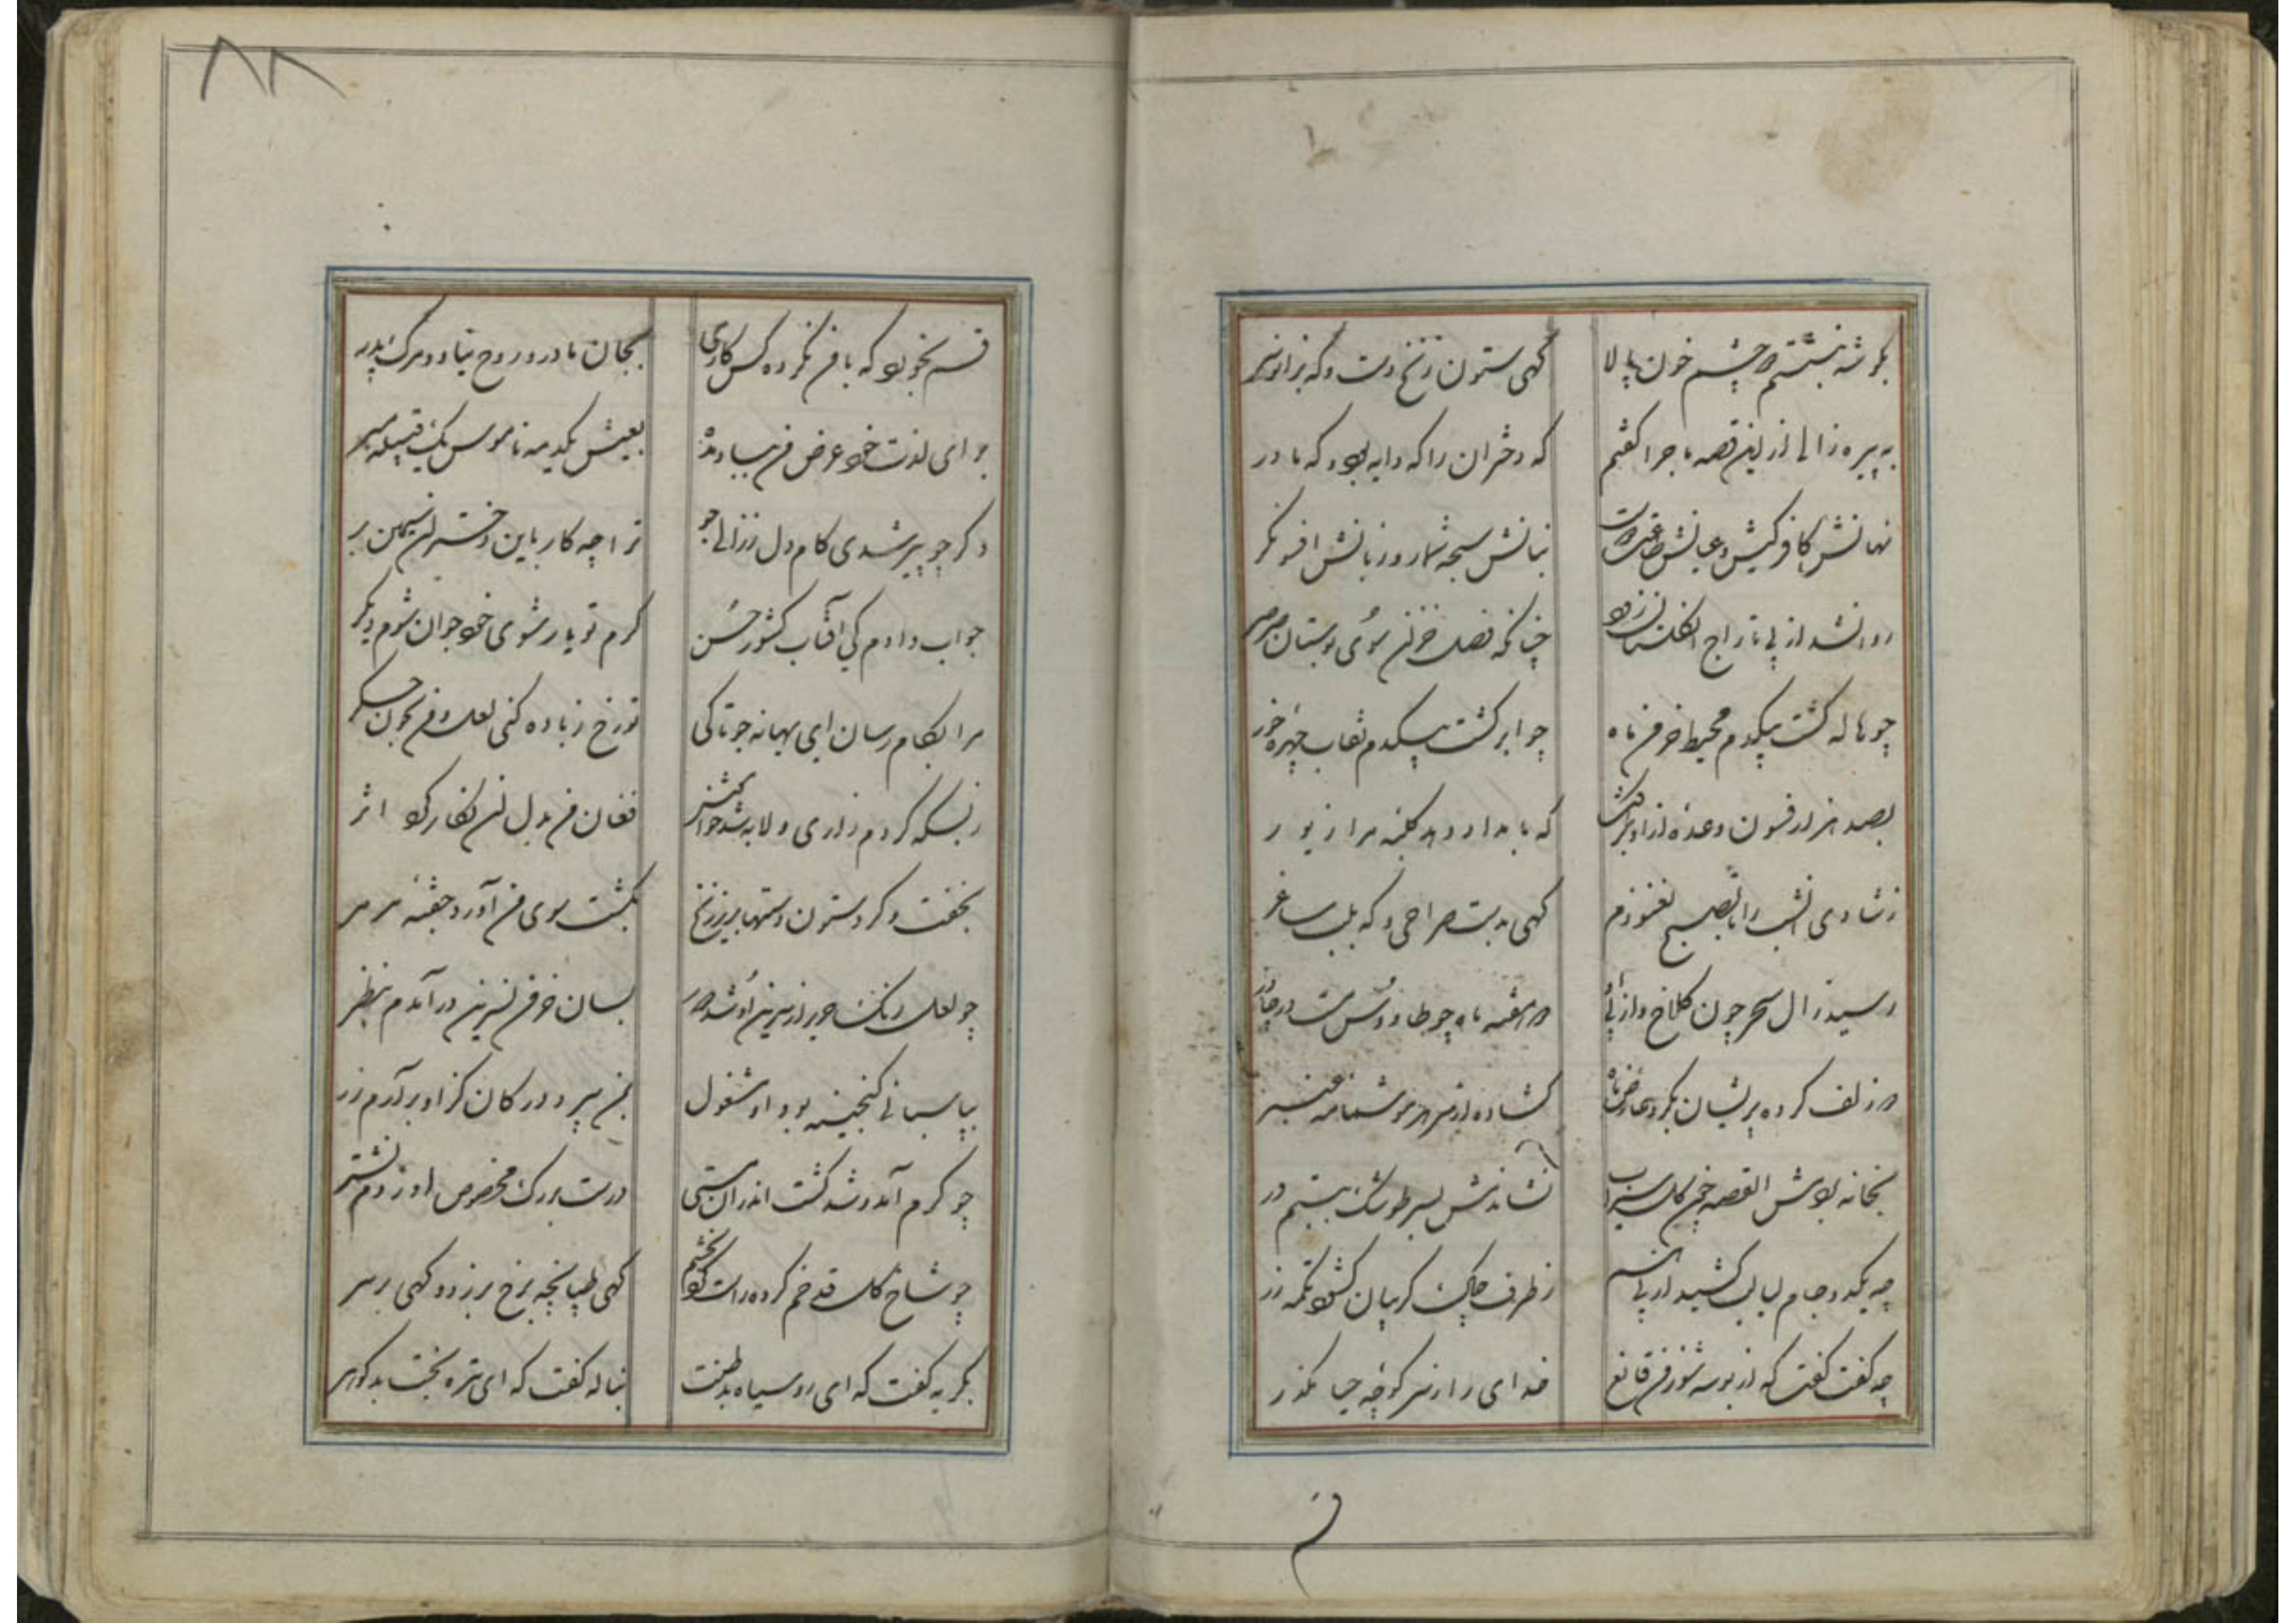 بگوشه بنشستم دو چشم خون پالا گهی ستون زنخ دست و گه بزانو سر
به پیره زالی از این قصه ماجرا گفتم که دختران را گه دایه بود گه مادر
نهانش کافر کیش و عیانش نبانش سبحه شمار و زبانش افسونگر
روانشد از پی تاراج آن گلستان زود چنانکه فصل خزان سوی بوستان صرصر
چو هاله گشت بیکدم محیط خرمن ماه چو ابر گشت بیکدم نقاب چهره خور
بصد هزار فسون وعده از او که بامداد دهد کلبه مرا زیور
ز شادی آنشب را تا بصبح نغنودم گهی بدست صراحی و گه بلب ساغر
رسید زال سحر چون کلاغ و از پی او آنمه چو طاووس مست در چادر
دو زلف کرده پریشان بگرد عارض ماه گشاده از سر هر مو شمامه عنبر
بخانه بردمش القصه چون گل سیراب نشاندمش بسر طرب ببستم در
چه یکدو جام لبالب کشید از پی هم ز طرف چاک گریبان گشود تکمه زر
چه گفت گفت که از بوسه شو ز من قانع خدای را ز سر کوچه حیا مگذر
۸۸
قسم بخور که با من نکرده کس کاری بجان مادر و روح نیا و مرگ پدر
برای لذت خود عرض من بباد مده بعیش یکدمه ناموس یک قبیله مبر
دگر چو پیر شدی کام دل ز زالی جو ترا چه کار باین دختران سیمین بر
جواب دادم کی آفتاب کشور حسن گرم تو یار شوی خود جوان شوم دیگر
مرا بکام رسان ای بهانه جو تا کی تو رخ ز باده کنی لعل و من بخون جگر
ز بسکه کردم زاری و لابه شد آخر فغان من بدل آن نگار کرد اثر
بخفت و کرد ستون دستها بزیر زنخ بگشت سوی من آورد حقه مرمر
چو لعل رنگ حریر از سرین او شد دور بسان خرمن نسرین درآمدم بنظر
بپاسبانی گنجینه بود او مشغول بمن سپرد در کان کز او برآرم زر
چو گرم آمد و شد گشت اندران مستی درست بررگ مخصوص او زدم نشتر
چو شاخ گل قد خم کرده راست کرد بخشم گهی طپانچه برخ بر زد و گهی بر سر
بگریه گفت که ای روسیاه بدطینت بناله گفت که ای تیره بخت بدگوهر